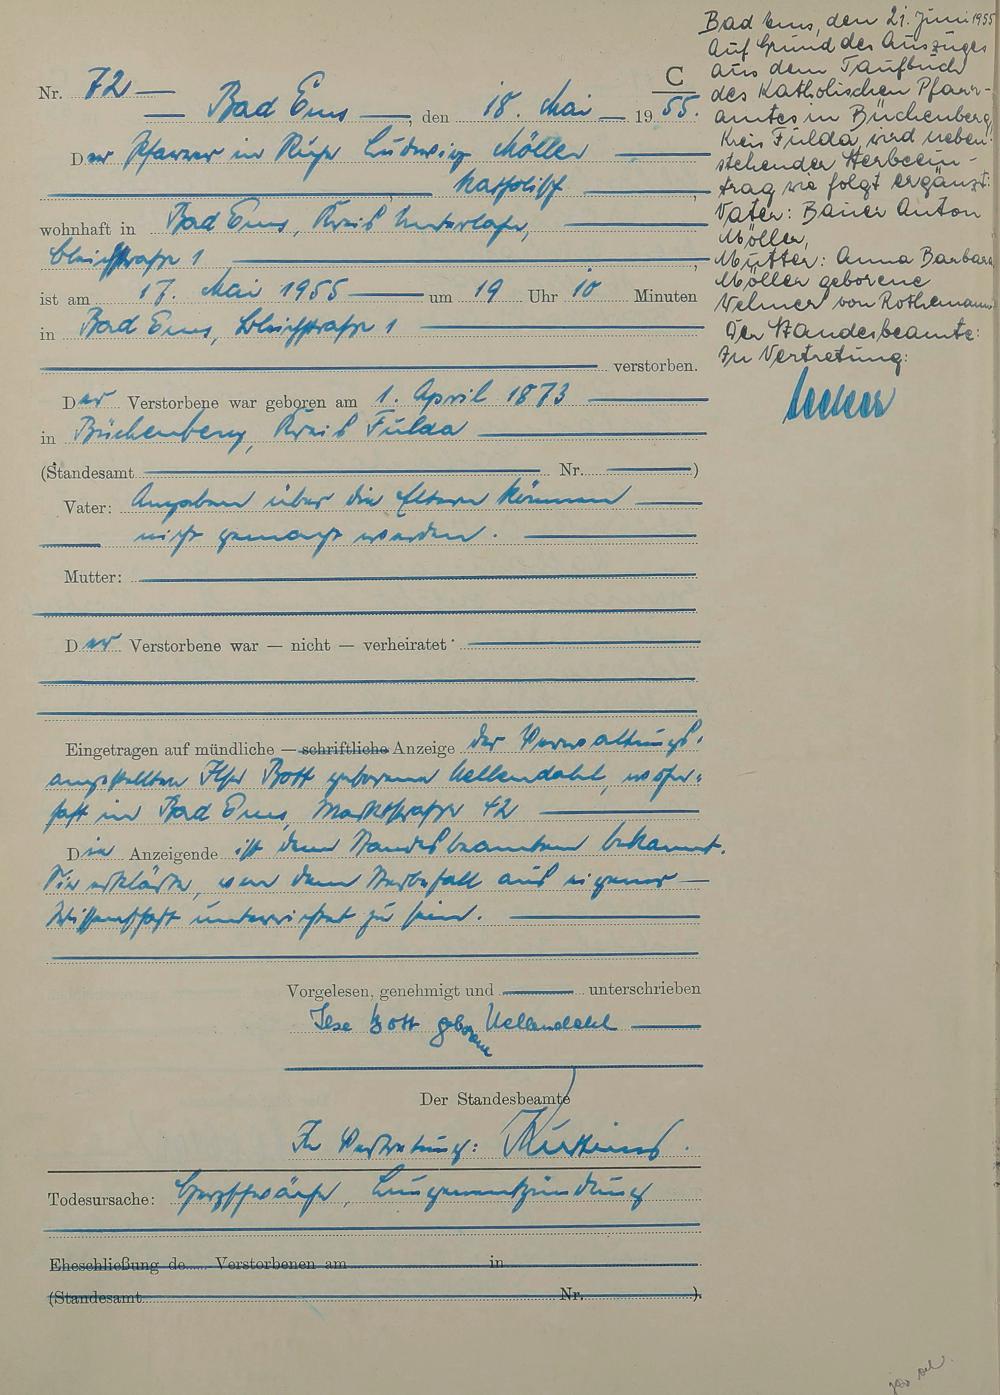 C
Nr. 72
Bad Ems, den 18. Mai 1955.
Der Pfarrer in Ruhe Ludwig Möller
katholisch
wohnhaft in Bad Ems, Kreis Unterlahn,
Bleichstraße 1
ist am 17. Mai 1955 um 19 Uhr 10 Minuten
in Bad Ems, Bleichstraße 1
verstorben.
Der Verstorbene war geboren am 1. April 1873
in Büchenberg, Kreis Fulda
(Standesamt Nr. )
Vater: Angaben über die Eltern können
nicht gemacht werden.
Mutter:
Der Verstorbene war — nicht — verheiratet
Eingetragen auf mündliche — schriftliche Anzeige der Verwaltungs-
angestellten Ilse Bott geborene Uellendahl, wohn-
haft in Bad Ems, Marktstraße 42
Die Anzeigende ist dem Standesbeamten bekannt.
Sie erklärte, von dem Sterbefall aus eigener
Wissenschaft unterrichtet zu sein.
Vorgelesen, genehmigt und unterschrieben
Ilse Bott geborene Uellendahl
Der Standesbeamte
In Vertretung:
Todesursache: Herzschwäche, Lungenentzündung
Eheschließung de Verstorbenen am in
(Standesamt Nr. ).
Bad Ems, den 21. Juni 1955
Auf Grund des Auszuges
aus dem Taufbuch
des Katholischen Pfarr-
amtes in Büchenberg,
Kreis Fulda, wird neben-
stehender Sterbeein-
trag wie folgt ergänzt:
Vater: Bauer Anton
Möller,
Mutter: Anna Barbara
Möller geborene
Velmer von Rothemann
Der Standesbeamte:
In Vertretung: